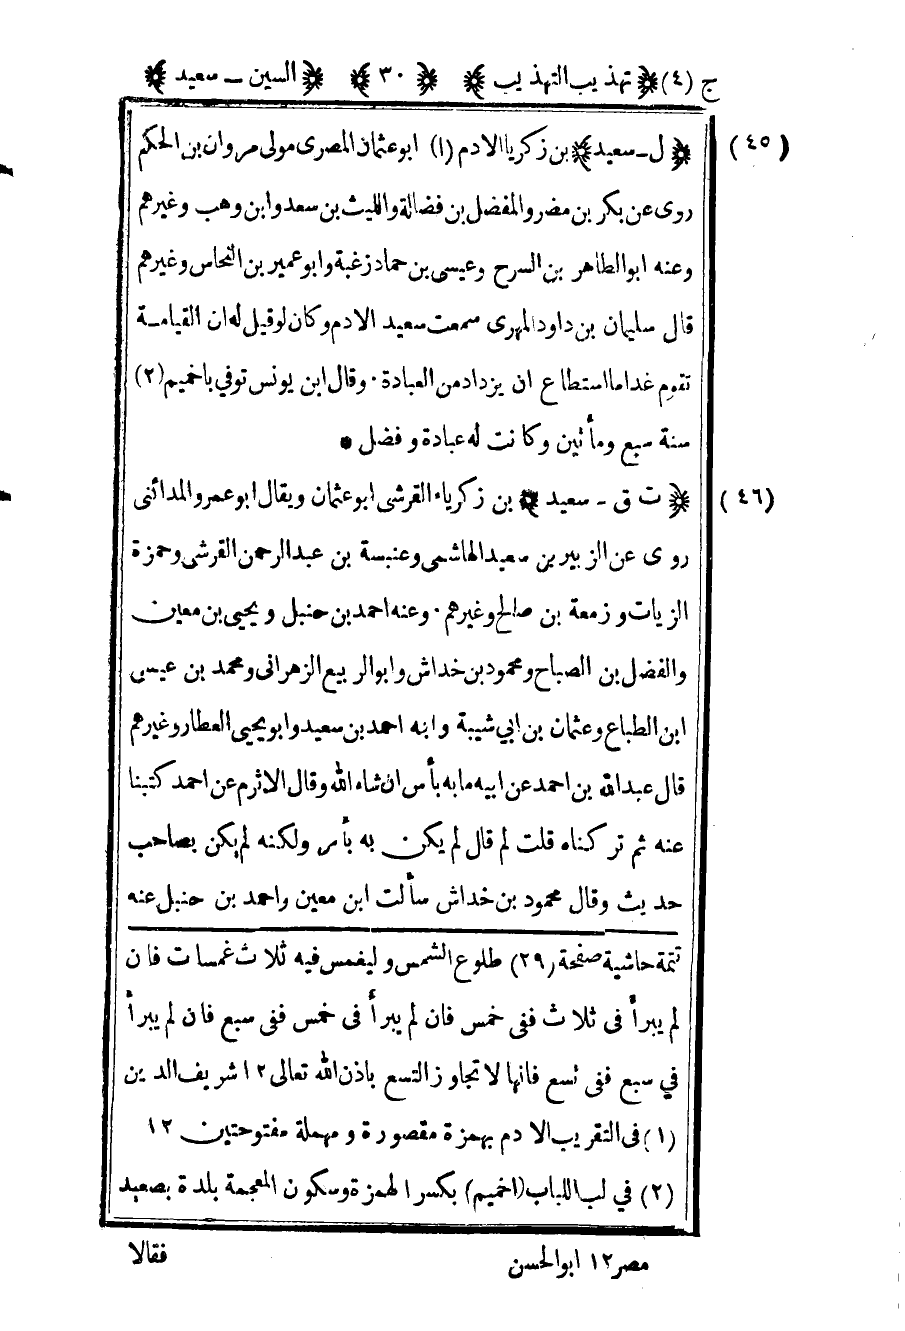 ج (٤) ﴿ تهذيب التهذيب ﴾ ﴿ ٣٠ ﴾ ﴿ السين ـ سعيد ﴾
(٤٥) ﴿ ل ـ سعيد ﴾ بن زكريا الادم (١) ابو عثمان المصرى مولى مروان بن الحكم
روى عن بكر بن مضر والمفضل بن فضالة والليث بن سعد وابن وهب وغيرهم
وعنه ابو الطاهر بن السرح وعيسى بن حماد زغبة وابو عمير بن النحاس وغيرهم
قال سليمان بن داود المهرى سمعت سعيد الادم وكان لو قيل له ان القيامة
تقوم غدا ما استطاع ان يزداد من العبادة . وقال ابن يونس توفي باخميم (٢)
سنة سبع ومأتين وكانت له عبادة وفضل *
(٤٦) ﴿ ت ق ـ سعيد ﴾ بن زكرياء القرشى ابو عثمان ويقال ابو عمرو المدائنى
روى عن الزبير بن سعيد الهاشمى وعنبسة بن عبد الرحمن القرشى وحمزة
الزيات وزمعة بن صالح وغيرهم . وعنه احمد بن حنبل ويحيى بن معين
والفضل بن الصباح ومحمود بن خداش وابو الربيع الزهرانى ومحمد بن عيسى
ابن الطباع وعثمان بن ابي شيبة وابنه احمد بن سعيد وابو يحيى العطار وغيرهم
قال عبدالله بن احمد عن ابيه ما به بأس ان شاء الله وقال الاثرم عن احمد كتبنا
عنه ثم تركناه قلت لم قال لم يكن به بأس ولكنه لم يكن بصاحب
حديث وقال محمود بن خداش سألت ابن معين واحمد بن حنبل عنه
تتمة حاشية صفحة (٢٩) طلوع الشمس وليغمس فيه ثلاث غمسات فان
لم يبرأ فى ثلاث ففى خمس فان لم يبرأ فى خمس ففى سبع فان لم يبرأ
في سبع ففى تسع فانها لا تجاوز التسع باذن الله تعالى ١٢ شريف الدين
(١) فى التقريب الادم بهمزة مقصورة ومهملة مفتوحتين ١٢
(٢) في لب اللباب (اخميم) بكسر الهمزة وسكون المعجمة بلدة بصعيد
مصر ١٢ ابوالحسن
فقالا